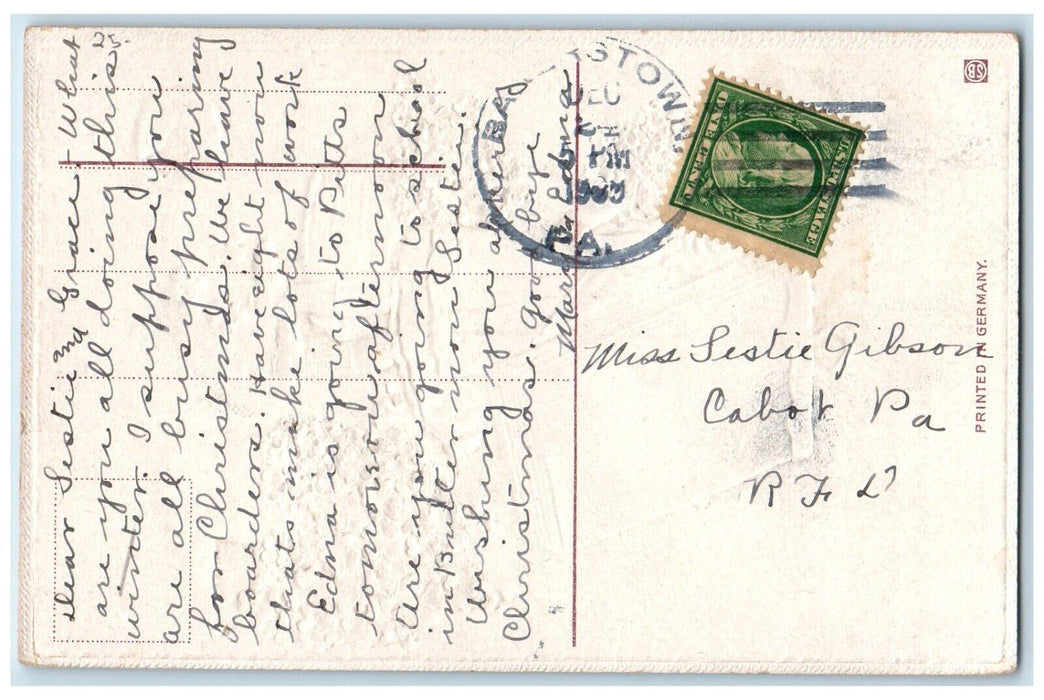 Dear Sestie and Grace - What
25.
are you all doing this
winter. I suppose you
are all busy preparing
for Christmas. We have
boarders. Have eight now
thats make lots of work
Edna is going to Pitts
tomorrow afternoon
Are you going to school
in Butler now Sestie.
Wishing you a Merry
Christmas. good bye
Mary Edna
DEC
5 PM
PA.
ONE CENT
U.S. POSTAGE
Miss Sestie Gibson
Cabot Pa
R F D
PRINTED IN GERMANY.
SB